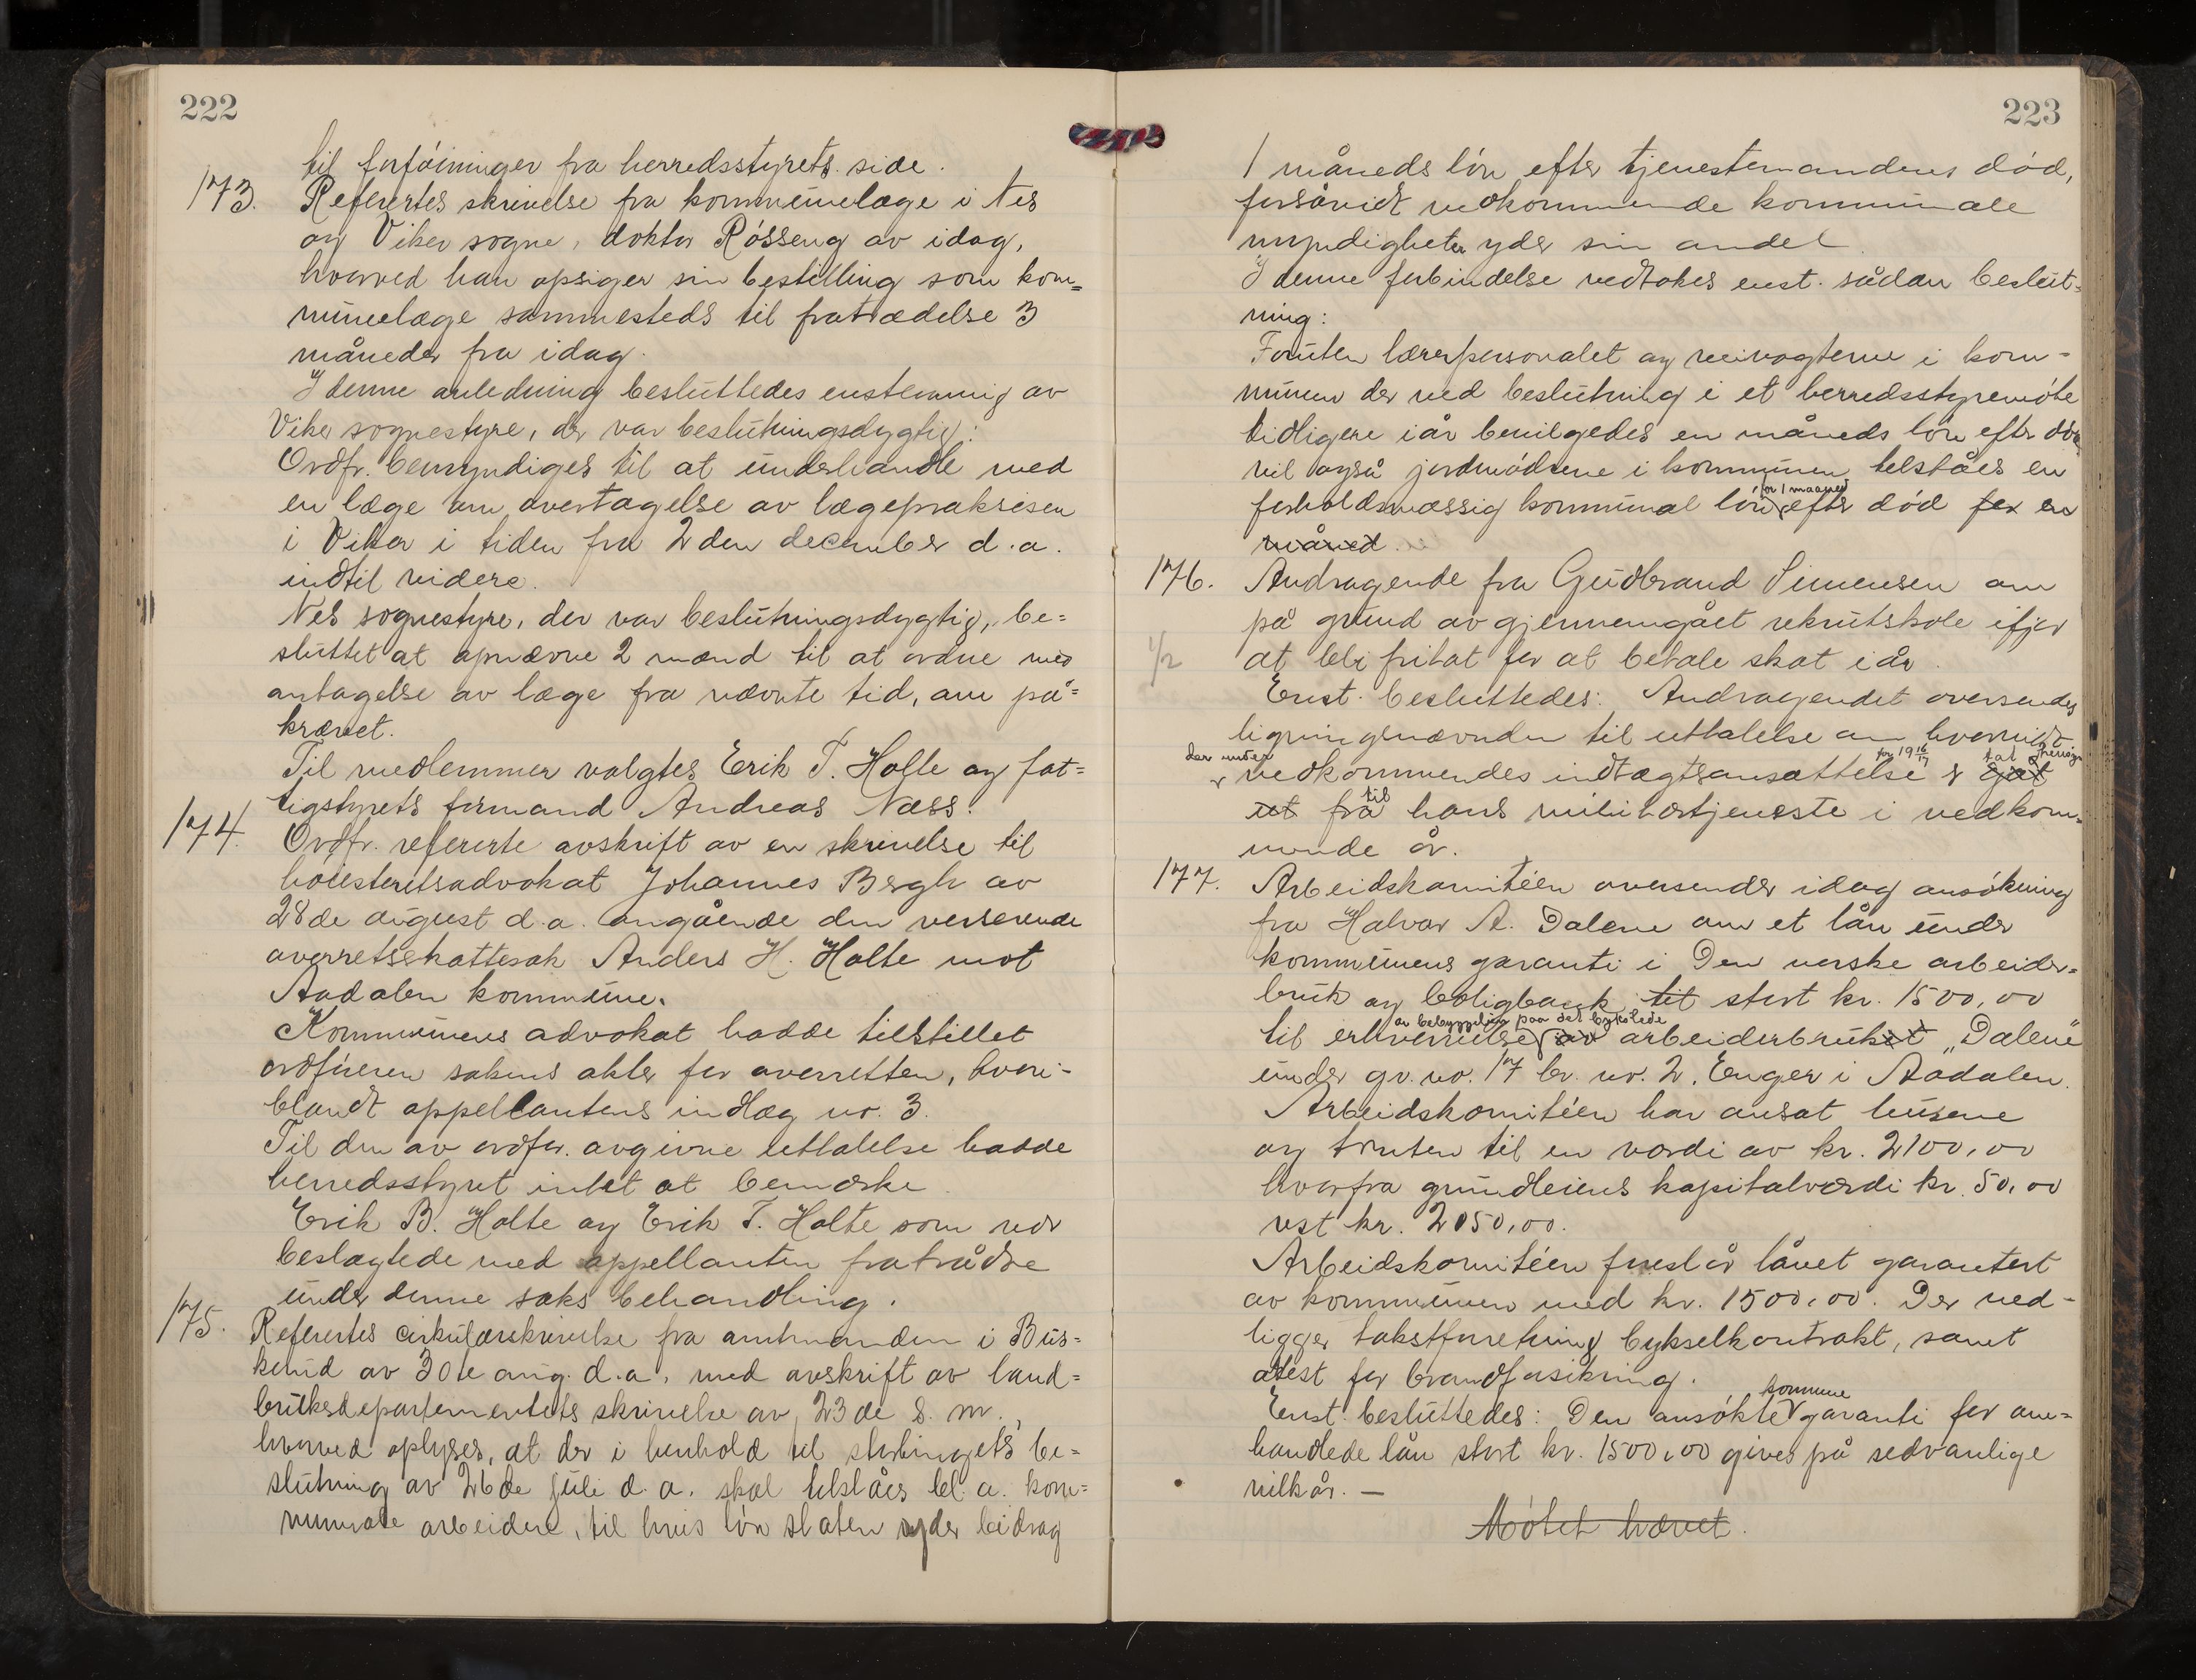 222
til forföininger fra herredsstyrets side.
173. Refertes skrivelse fra kommunelæge i Nes
og Viker sogne, doktor Rösseng av idag,
hvorved han opsiger sin bestilling som kom=
munelæge sammesteds til fratrædelse 3
måneder fra idag.
I denne anledning besluttedes enstemmig av
Viker sognestyre, der var beslutningsdygtig:
Ordfr. bemyndiges til at underhandle med
en læge om overtagelse av lægepraksisen
i Viker i tiden fra 2den december d.a.
indtil videre.
Nes sognestyre, der var beslutningsdygtig, be=
sluttet at opnævne 2 mænd til at ordne med
antagelse av læge fra nævnte tid, om på=
krævet.
Til medlemmer valgtes Erik T. Holte og fat=
tigstyrets formand Andreas Næss.
174. Ordfr. refererte avskrift av en skrivelse til
höiesteretsadvokat Johannes Bergh av
28de august d.a. angående den verserende
overretsskattesak Anders H. Holte mot
Aadalen kommune.
Kommunens advokat hadde tilstillet
ordföreren sakens akter for overretten, hvori-
blandt appellantens indlæg nr. 3.
Til den av ordfr. avgivne uttalelse hadde
herredsstyret intet at bemærke.
Erik B. Holte og Erik T. Holte som var
beslægtede med appellanten fratrådte
under denne saks behandling.
175. Refertes cirkulærskrivelse fra amtmanden i Bus=
kerud av 30te aug. d.a. med avskrift av land=
bruksdepartementets skrivelse av 23de s.m.,
hvorved oplyses, at der i henhold til stortingets be=
slutning av 26de juli d.a. skal tilståes bl.a. kom=
munale arbeidere, til hvis lön staten yder bidrag
223
1 måneds lön efter tjenestemandens död,
forsåvidt vedkommende kommunale
myndigheter yder sin andel.
I denne forbindelse vedtokes enst. sådan beslut=
ning:
Foruten lærerpersonalet og veivogterne i kom=
munen der ved beslutning i et herredsstyremöte
tidligere iår bevilgedes en måneds lön efter död
vil også jordmödrene i kommunen tilståes en
for 1 maaned
forholdsmæssig kommunal lön efter död for en
måned.
176. Andragende fra Gudbrand Simensen om
på grund av gjennemgået rekrutskole ifjor
1/2 at bli fritat for at betale skat iår.
Enst. besluttedes: Andragendet oversendes
ligningsnævnden til uttalelse om hvorvidt
der under for 1916/17 tat hensyn
vedkommendes indtægtsansættelse er gåt
til
ut fra hans militærtjeneste i vedkom=
mende år.
177. Arbeidskomitéen oversender idag ansökning
fra Halvor A. Dalene om et lån under
kommunens garanti i Den norske arbeider=
bruk og boligbank til stort kr. 1500,00
av bebyggelsen paa det bykslede
til erhvervelse av arbeiderbruket "Dalene"
under gr. no. 17 br. nr. 2, Enger i Aadalen.
Arbeidskomitéen har ansat husene
og tomten til en værdi av kr. 2100,00
hvorfra grundleiens kapitalværdi kr. 50,00
rest kr. 2050,00.
Arbeidskomitéen foreslår lånet garantert
av kommunen med kr. 1500,00. Der ved-
ligger takstforretning, bykselkontrakt, samt
atest for brandforsikring.
komune
Enst. besluttedes: Den ansökte garanti for om=
handlede lån stort kr. 1500,00 gives på sedvanlige
vilkår. —
Mötet hævet.